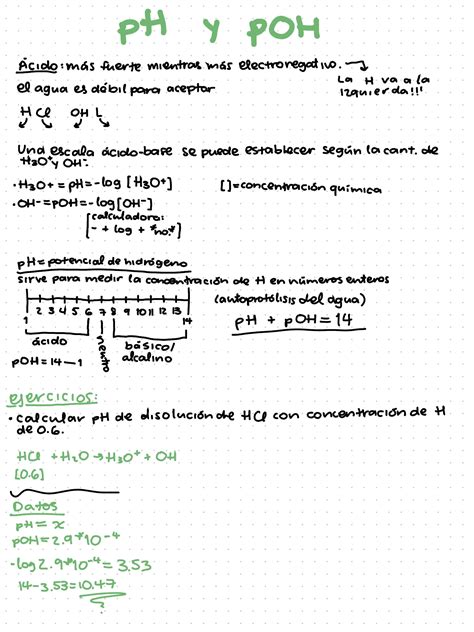 pH y pOH
Ácido: más fuerte mientras más electronegativo. →
La H va a la
izquierda!!!
el agua es débil para aceptar
H Cl OH L
Una escala ácido-base se puede establecer según la cant. de
H3O+ y OH-.
· H3O+ = pH = -log [H3O+]
[] = concentración química
· OH- = pOH = -log [OH-]
[calculadora:
- + log + "no."]
pH = potencial de hidrógeno
sirve para medir la concentración de H en números enteros
(autoprotólisis del agua)
1 2 3 4 5 6 7 8 9 10 11 12 13 14
pH + pOH = 14
ácido neutro básico/
alcalino
pOH = 14 — 1
ejercicios:
· calcular pH de disolución de HCl con concentración de H
de 0.6.
HCl + H2O → H3O+ + OH
[0.6]
Datos
pH = x
pOH = 2.9*10-4
-log 2.9*10-4 = 3.53
14 - 3.53 = 10.47
?